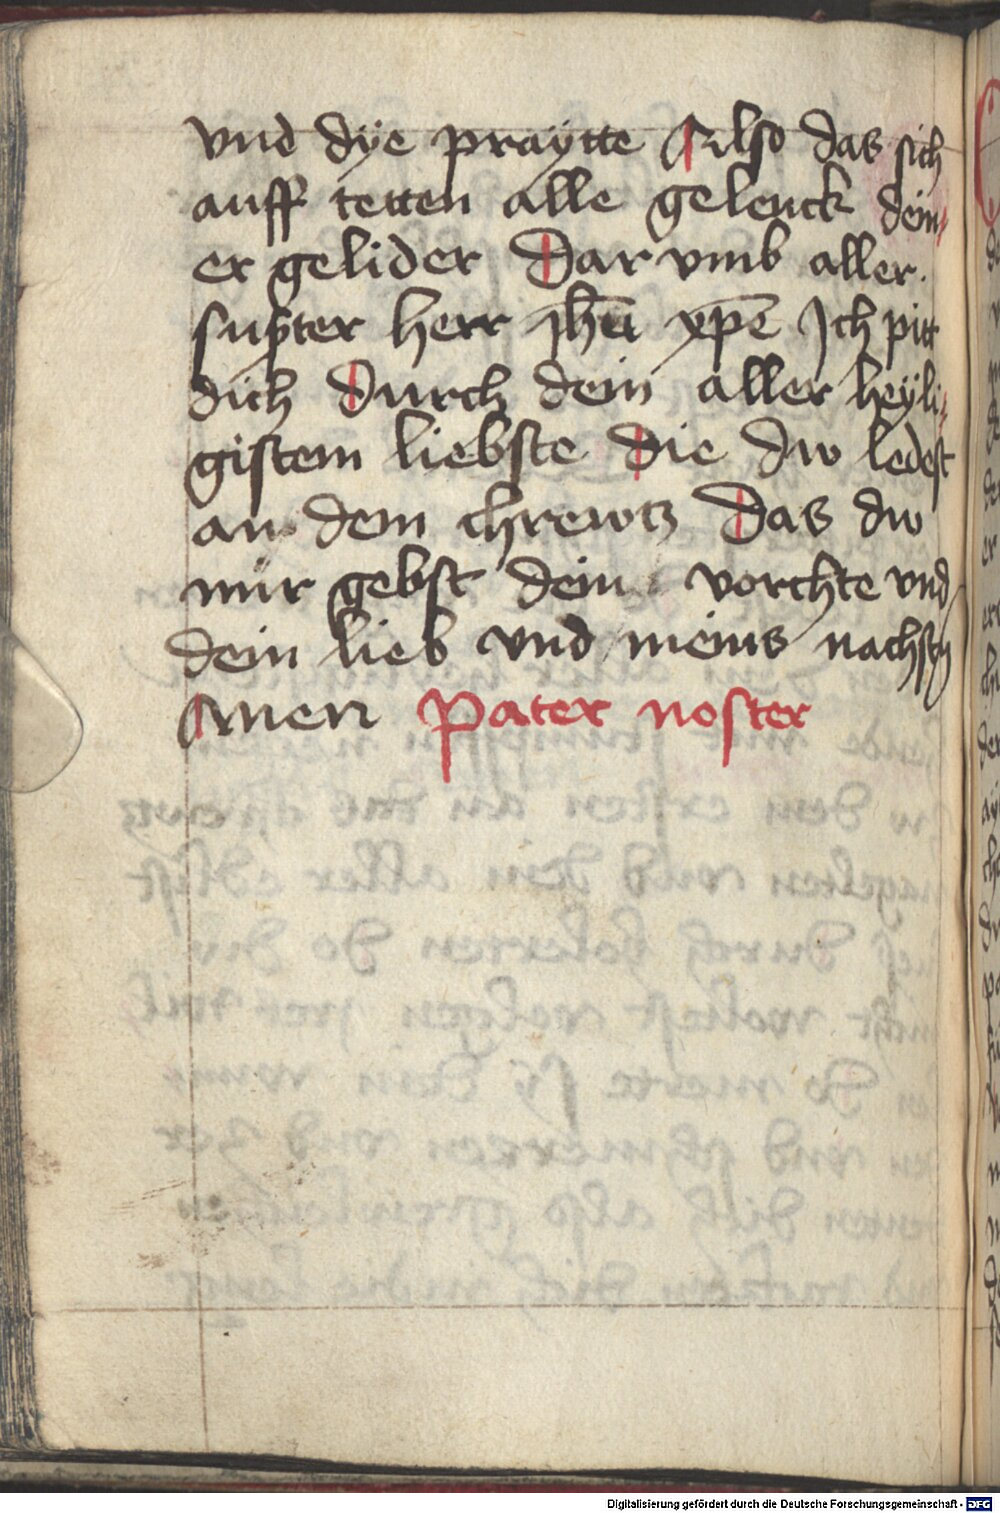 vnd dÿe praÿtte Also das sich
auff tetten alle gelenck dein„
er gelider Dar vmb aller.
suster herr jhū xp̄e Ich pitt
dich Durch dein aller heÿli„
gistem liebste die dw ledest
an dem chrewtz Das dw
mir gebst dein vorchte vnd
dein lieb vnd meins nachstn̄
Amen Pater noster
Digitalisierung gefördert durch die Deutsche Forschungsgemeinschaft - DFG